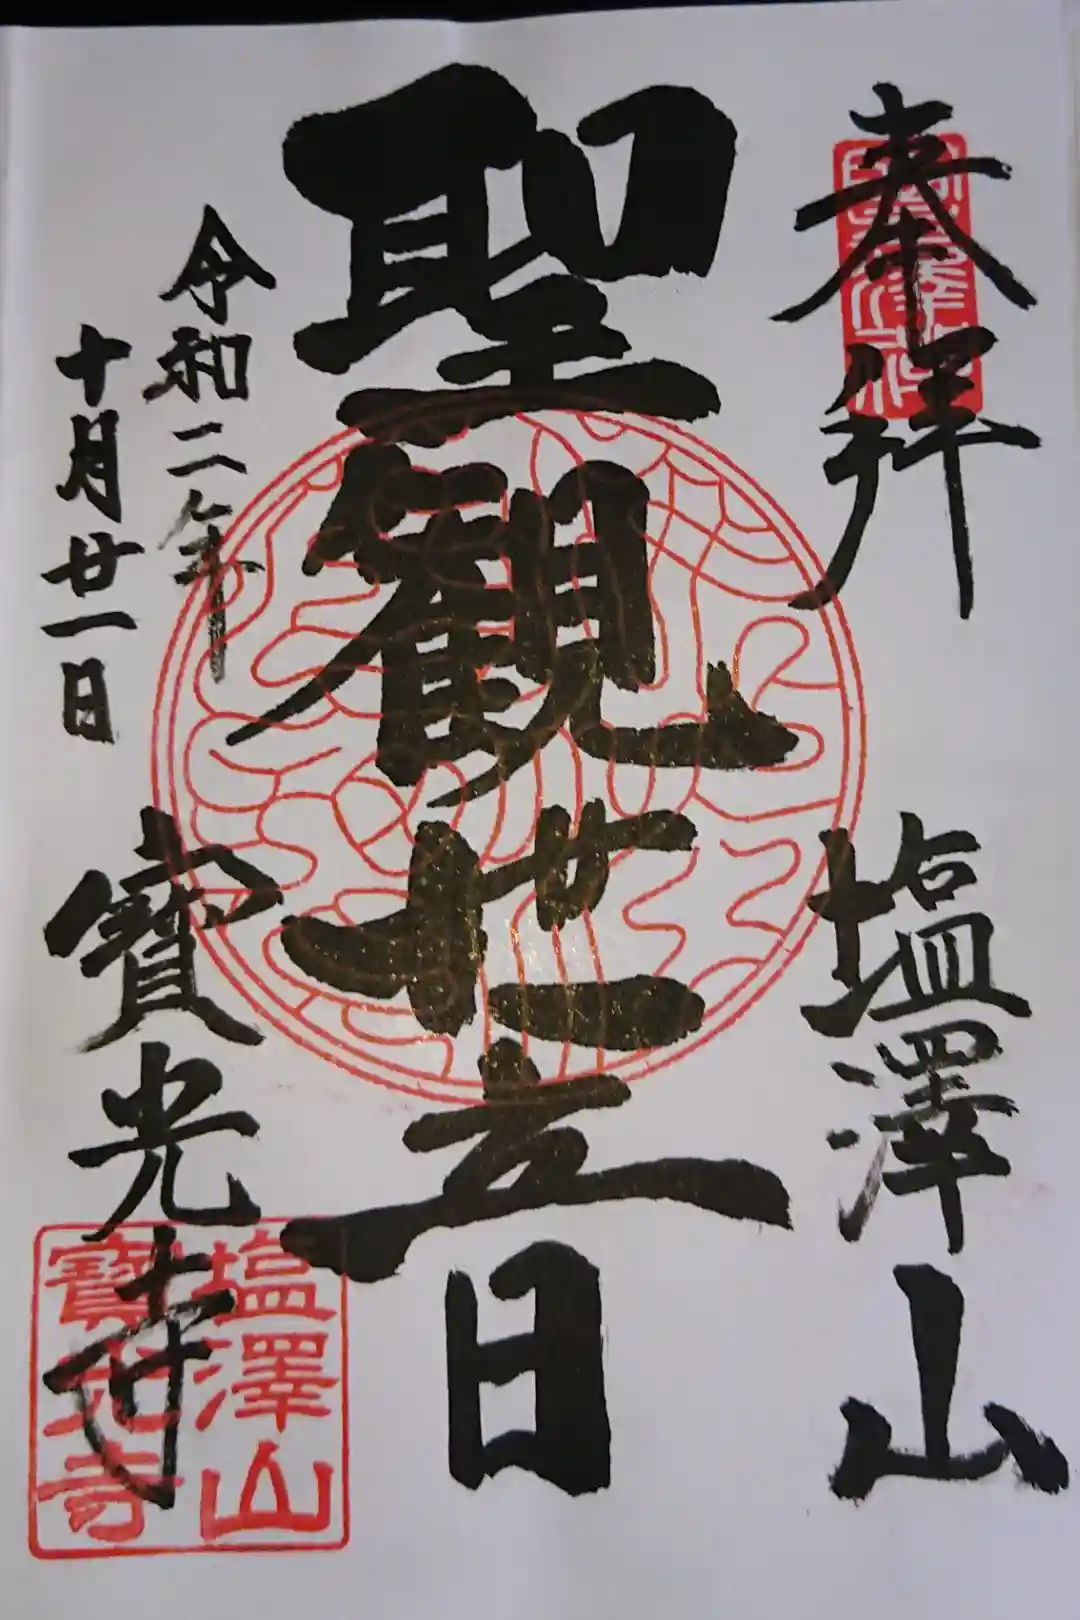 奉拝
塩澤山
聖観世音
令和二年
十月廿一日
寳光寺
塩澤山
寳光寺